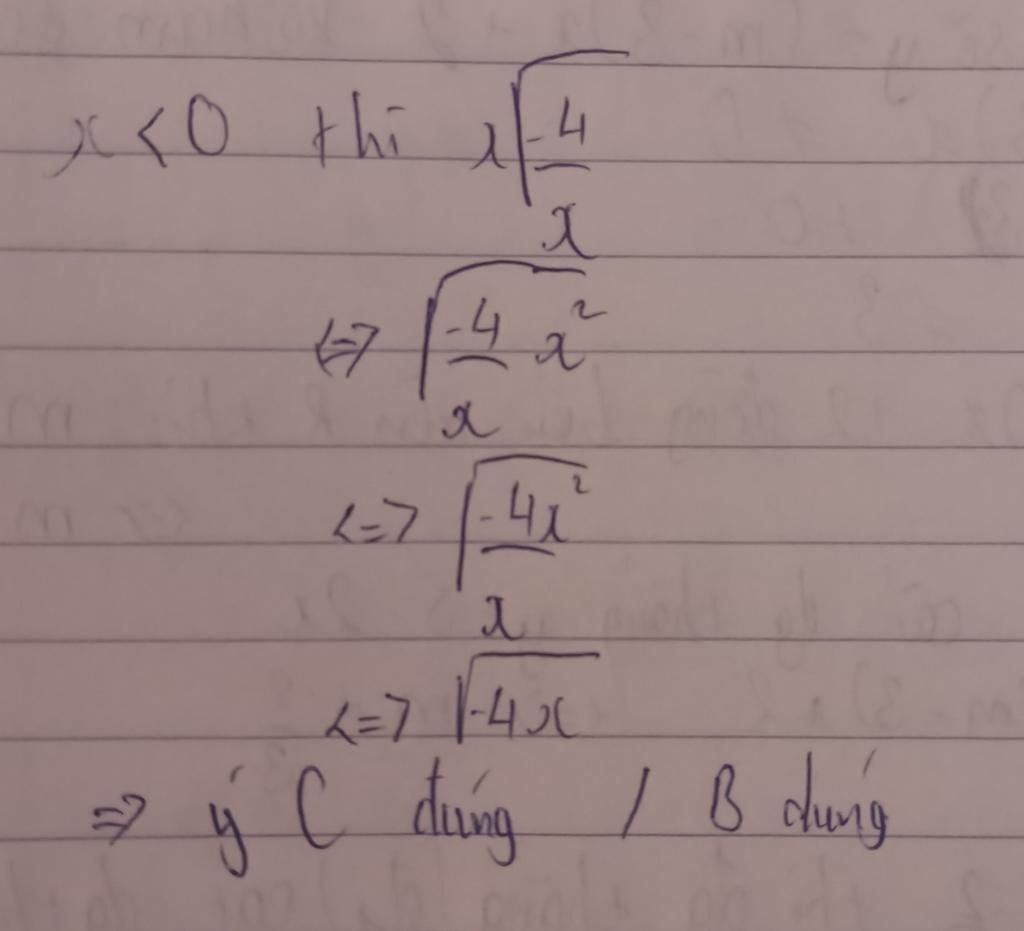 x < 0 thì x√(-4/x)
<=> √(-4/x x²)
<=> √(-4x²/x)
<=> √(-4x)
=> ý C đúng / B đúng